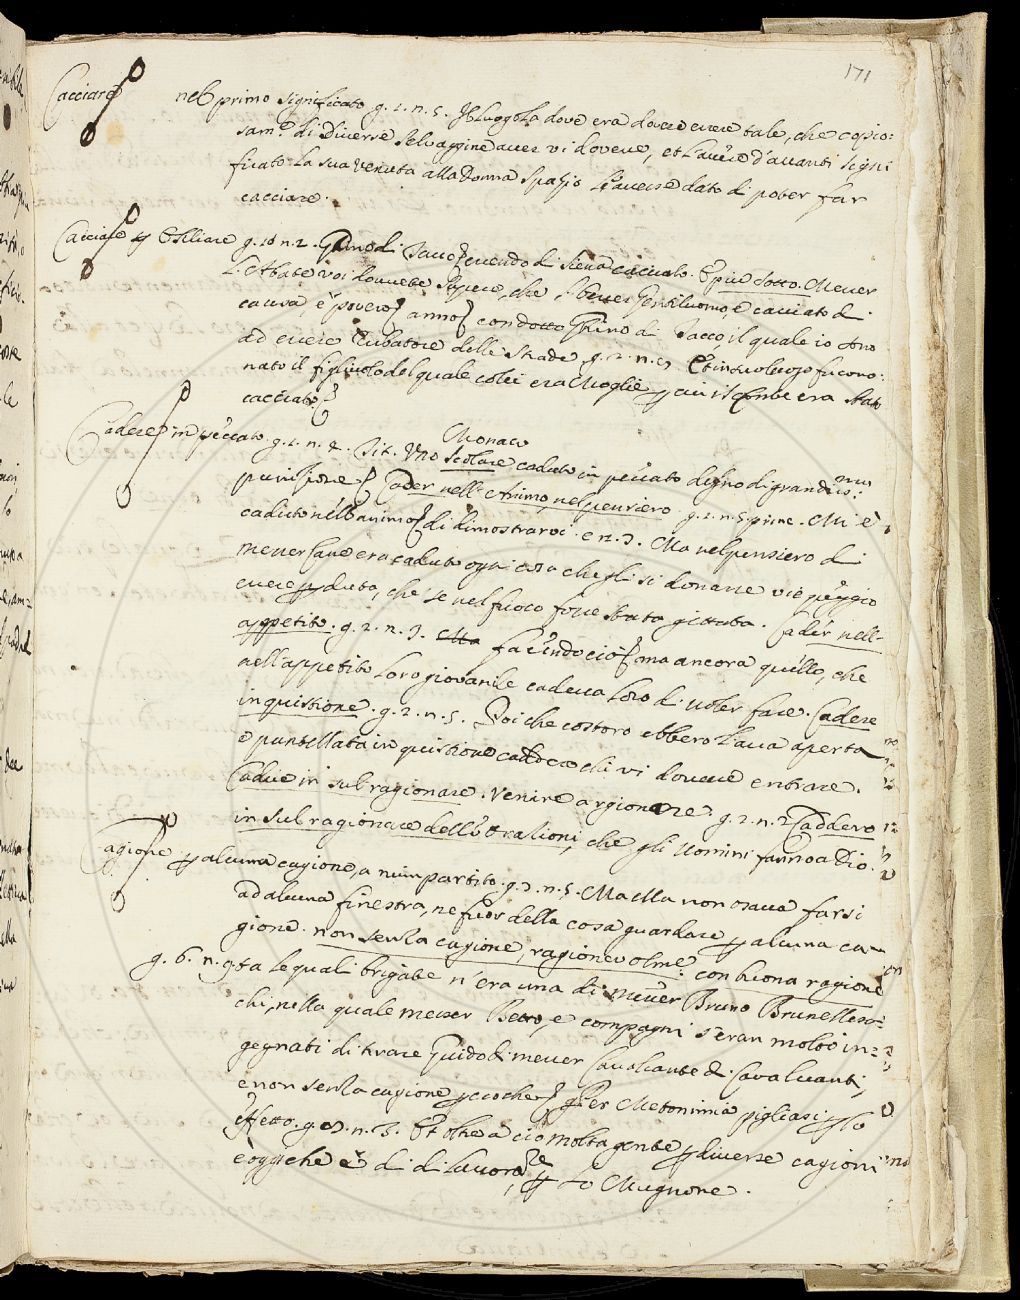 171
Cacciare nel primo significato g. 2. n. 5. Il luogo la dove era dovere essere tale, che copio:
sam.e di diverse selvaggine aver vi doveve, et l'avere d'avanti signi
ficato la sua venuta alla donna spazio l'avesse dato di poter far
cacciare.
Cacciare p Esiliare g. 10 n. 2. Ghino di Tacco essendo di Siena cacciato. E più sotto. Messer
L'Abate voi dovvete sapere, che l'esser gentiluomo e cacciato di
causa, e povero anno condotto Ghino di Tacco il quale io sono
ad essere rubatore delle strade, g. 2. n. Et in suo luogo furono
nato il figliuolo del quale colei era moglie p cui il Conte era stato
cacciato
Cadere in peccato. g. 1. n. 4. Tit. Uno Monaco
scolare caduto in peccato degno di grandiss:
punizione Cader nell' Animo, nel pensiero. g. 2. n. 5 prine. Mi è
caduto nell'animo di dimostrarvi. e n. 3. Ma nel pensiero di
messer era caduto ogni cosa che gli si donasse vie peggio
essere pduta, che se nel fuoco fosse stata gittata. Cader nell-
appetito. g. 2. n. 3. facendo ciò ma ancora quello, che
nell'appetito loro giovanile cadeva loro di voler fare. Cadere
in quistione. g. 2. n. 5. Poi che costoro ebbero l'arca aperta
e puntellata in quistione caddero chi vi dovesse entrare.
Cadere in sul ragionare. Venire a ragionare. g. 2. n. 2 Caddero
in sul ragionare dell'orazioni, che gli uomini fanno a Dio.
Cagione p alcuna cagione, a niun partito. g. 3. n. 5. Ma ella non osava farsi
ad alcuna finestra, ne fuor della casa guardare p alcuna ca-
gione. non senza cagione, ragionevolme. con buona ragione
g. 6. n. 9. tra le quali brigate n'era una di messer Bruno Brunellesc-
chi, nella quale messer Betto, e compagni s'eran molto in=
gegnati di tirare Guido di messer Cavalcante de Cavalcanti,
e non senza cagione pcioche Per Metonimia pigliasi p lo
effetto. g. n. 3. Et oltre a cio molta gente p diverse cagioni
e oggi che è di di lavorare p lo Mugnone.